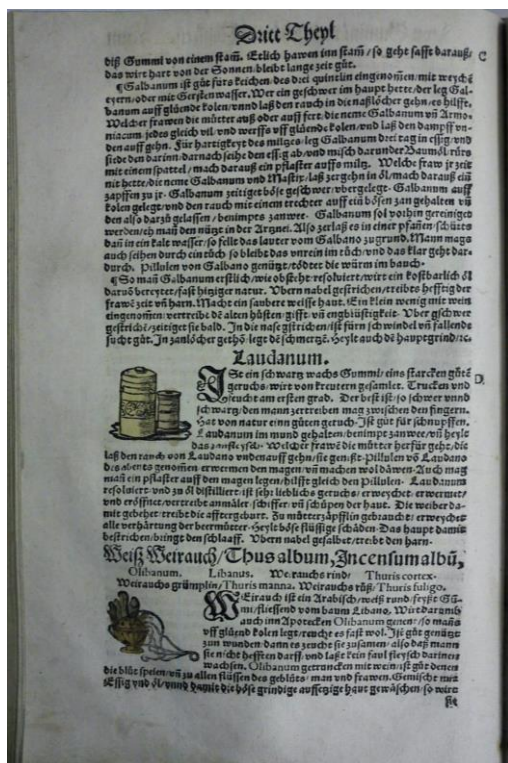 Dritt Theyl
diß Gummi von einem stam̃. Etlich hawen inn stam̃/ so geht safft darauß/ C
das wirt hart von der Sonnen/ bleibt lange zeit gůt.
¶ Galbanum ist gůt fürs keichen/ des drei quintlin eingenom̃en/ mit weychẽ
eyern/ oder mit Gersten wasser. Wer ein geschwer im haupt hette/ der leg Gal-
banum auff glüende kolen/ vnnd laß den rauch in die naßlöcher gehn/ es hilfft.
Welcher frawen die můtter auß oder auff fert/ die neme Galbanum vñ Armo-
niacum/ jedes gleich vil/ vnd werffs vff glüende kolen/ vnd laß den dampff vn-
den auff gehn. Für hartigkeyt des miltzes/ leg Galbanum drei tag in essig/ vnd
siede den darinn/ darnach seihe den essig ab/ vnd misch darunder Baumöl/ rürs
mit einem spattel/ mach darauß ein pflaster auffs miltz. Welche fraw jr zeit
nit hette/ die neme Galbanum vnd Mastix/ laß zergehn in öl/ mach darauß ein
zapffen zu jr. Galbanum zeitiget böse geschwer/ vbergelegt. Galbanum auff
kolen gelegt/ vnd den rauch mit einem trechter auff ein bösen zan gehalten vñ
den also darzů gelassen/ benimpt es zanwee. Galbanum sol vorhin gereiniget
werden/ eh man den nützt in der Artznei. Also zerlaß es in einer pfañen/ schüts
dañ in ein kalt wasser/ so fellt das lauter vom Galbano zu grund. Mann mags
auch seihen durch ein tůch/ so bleibt das vnrein im tůch/ vnd das klar geht dar-
durch. Pillulen von Galbano genützt/ tödtet die würm im bauch.
¶ So man Galbanum erstlich/ wie obsteht/ resoluiert/ wirt ein kostbarlich öl
daruõ bereytet/ fast hitziger natur. Vbern nabel gestrichen/ treibts hefftig der
frawẽ zeit vñ harn. Macht ein saubere weisse haut. Ein klein wenig mit wein
eingenom̃en/ vertreibt dẽ alten hůsten/ gifft/ vñ engbrüstigkeit. Vber gschwer
gestrichẽ/ zeitiget sie bald. In die nase gstrichen/ ist fürn schwindel vñ fallende
sucht gůt. In zanlöcher gethõ/ legt dẽ schmertzẽ. Heylt auch dẽ hauptgrind/ ꝛc.
Laudanum.
ISt ein schwartz wachs Gummi/ eins starcken gůtẽ D
geruchs/ wirt von kreutern gesamlet. Trucken vnd
feucht am ersten grad. Der best ist/ so schwer vnnd
schwartz/ den mann zertreiben mag zwischen den fingern.
Hat von natur einn gůten geruch. Ist gůt für schnupffen.
Laudanum im mund gehalten/ benimpt zanwee/ vñ heylt
das zanfleysch. Welcher frawẽ die můtter herfür geht/ die
laß den rauch von Laudano vnden auff gehn/ sie genißt. Pillulen võ Laudano
des abents genom̃en/ erwermen den magen/ vñ machen wol däwen. Auch mag
man ein pflaster auff den magen legen/ hilfft gleich den Pillulen. Laudanum
resoluiert/ vnd zu öl distilliert/ ist sehr lieblichs geruchs/ erweychet/ erwermet/
vnd eröffnet/ vertreibt anmäler/ schiffer/ vñ schüpen der haut. Die weiber da-
mit gebehet/ treibt die affter geburt. Zu můtterzäpfflin gebraucht/ erweychet
alle verhärtung der beermůtter. Heylt böse flüssige schäden. Das haupt damit
bestrichen/ bringt den schlaaff. Vbern nabel gesalbet/ treibt den harn.
Weiß Weirauch/ Thus album, Incensum albũ,
Olibanum. Libanus. Weirauchs rind/ Thuris cortex.
Weirauchs grümplin/ Thuris manna. Weirauchs růß/ Thuris fuligo.
WEirauch ist ein Arabisch/ weiß rund/ feyßt Gũ-
mi/ fliessend vom baum Libano. Wirt darumb
auch inn Apotecken Olibanum genent/ so mañs
vff glüend kolen legt/ reucht es fast wol. Ist gůt genützt
zun wunden/ dann es zeucht sie zusamen/ also daß mann
sie nicht hefften darff/ vnd laßt kein faul fleysch darinen
wachsen. Olibanum getruncken mit wein/ ist gůt denen
die blůt speien/ vñ zu allen flüssen des geblůts/ man vnd frawen. Gemischt mit
Essig vnd öl/ vnnd damit die böse grindige aussetzige haut gewäschen/ so wirt
sie